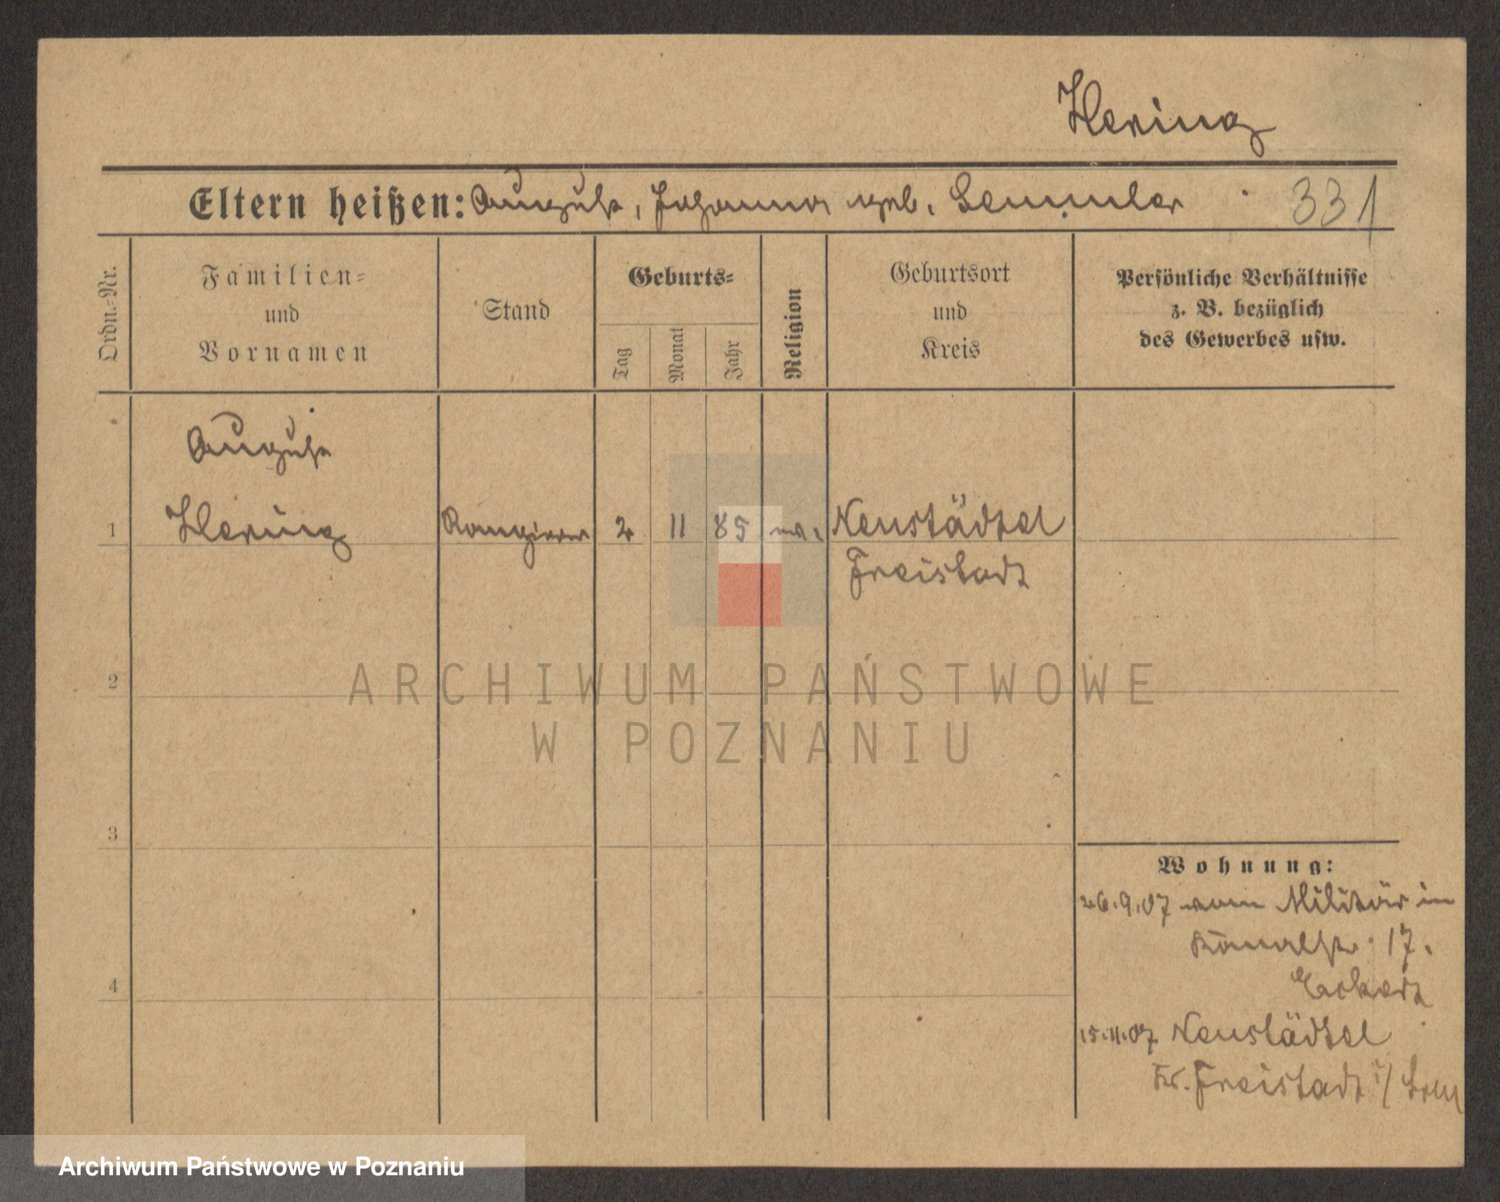 Hering
Eltern heißen: August, Johanna geb. Semmler 331
Ordn.-Nr.
Familien-
und
Vornamen
Stand
Geburts-
Tag
Monat
Jahr
Religion
Geburtsort
und
Kreis
Persönliche Verhältnisse
z. B. bezüglich
des Gewerbes usw.
August
1 Hering Rangierer 2 11 85 ev. Neustädtel
Freistadt
2
ARCHIWUM PAŃSTWOWE
W POZNANIU
3
Wohnung:
26.9.07 vom Militär in
Kanalstr. 17.
Eckert
4
15.11.07 Neustädtel
Kr. Freistadt
Archiwum Państwowe w Poznaniu